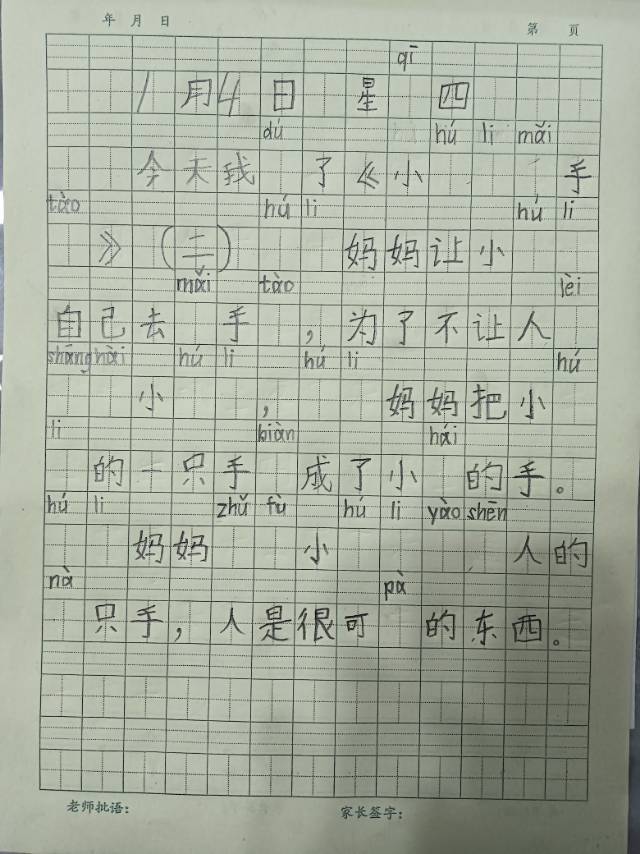 年 月 日 第 页
qī
1月4日 星 四
dú hú li mǎi
今天我 了《小 手
tào hú li hú li
》（二） 妈妈让小
mǎi tào lèi
自己去 手 ，为了不让人
shāng hài hú li hú li hú
小 ， 妈妈把小
li biàn hái
的一只手 成了小 的手。
hú li zhǔ fù hú li yào shēn
妈妈 小 人的
nà pà
只手，人是很可 的东西。
老师批语： 家长签字：